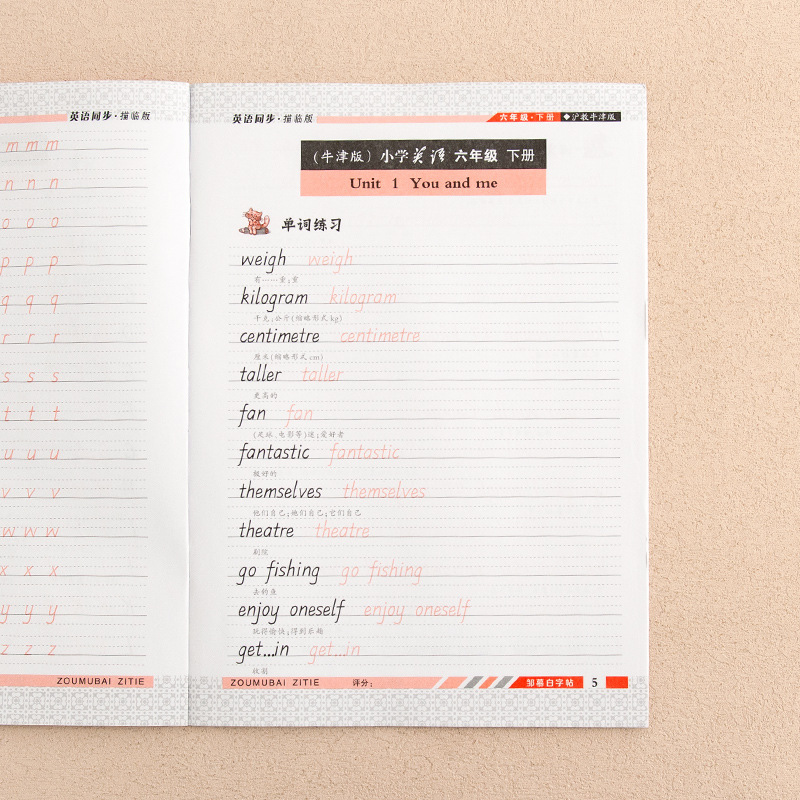 英语同步·描临版
m m m
n n n
o o o
p p p
q q q
r r r
s s s
t t t
u u u
v v v
w w w
x x x
y y y
z z z
ZOUMUBAI ZITIE
英语同步·描临版
六年级·下册 ◆沪教牛津版
(牛津版) 小学英语 六年级 下册
Unit 1 You and me
单词练习
weigh weigh
有……重;重
kilogram kilogram
千克;公斤(缩略形式 kg)
centimetre centimetre
厘米(缩略形式 cm)
taller taller
更高的
fan fan
(足球、电影等)迷;爱好者
fantastic fantastic
极好的
themselves themselves
他们自己;她们自己;它们自己
theatre theatre
剧院
go fishing go fishing
去钓鱼
enjoy oneself enjoy oneself
玩得愉快;得到乐趣
get...in get...in
收割
ZOUMUBAI ZITIE 评分:
邹慕白字帖 5